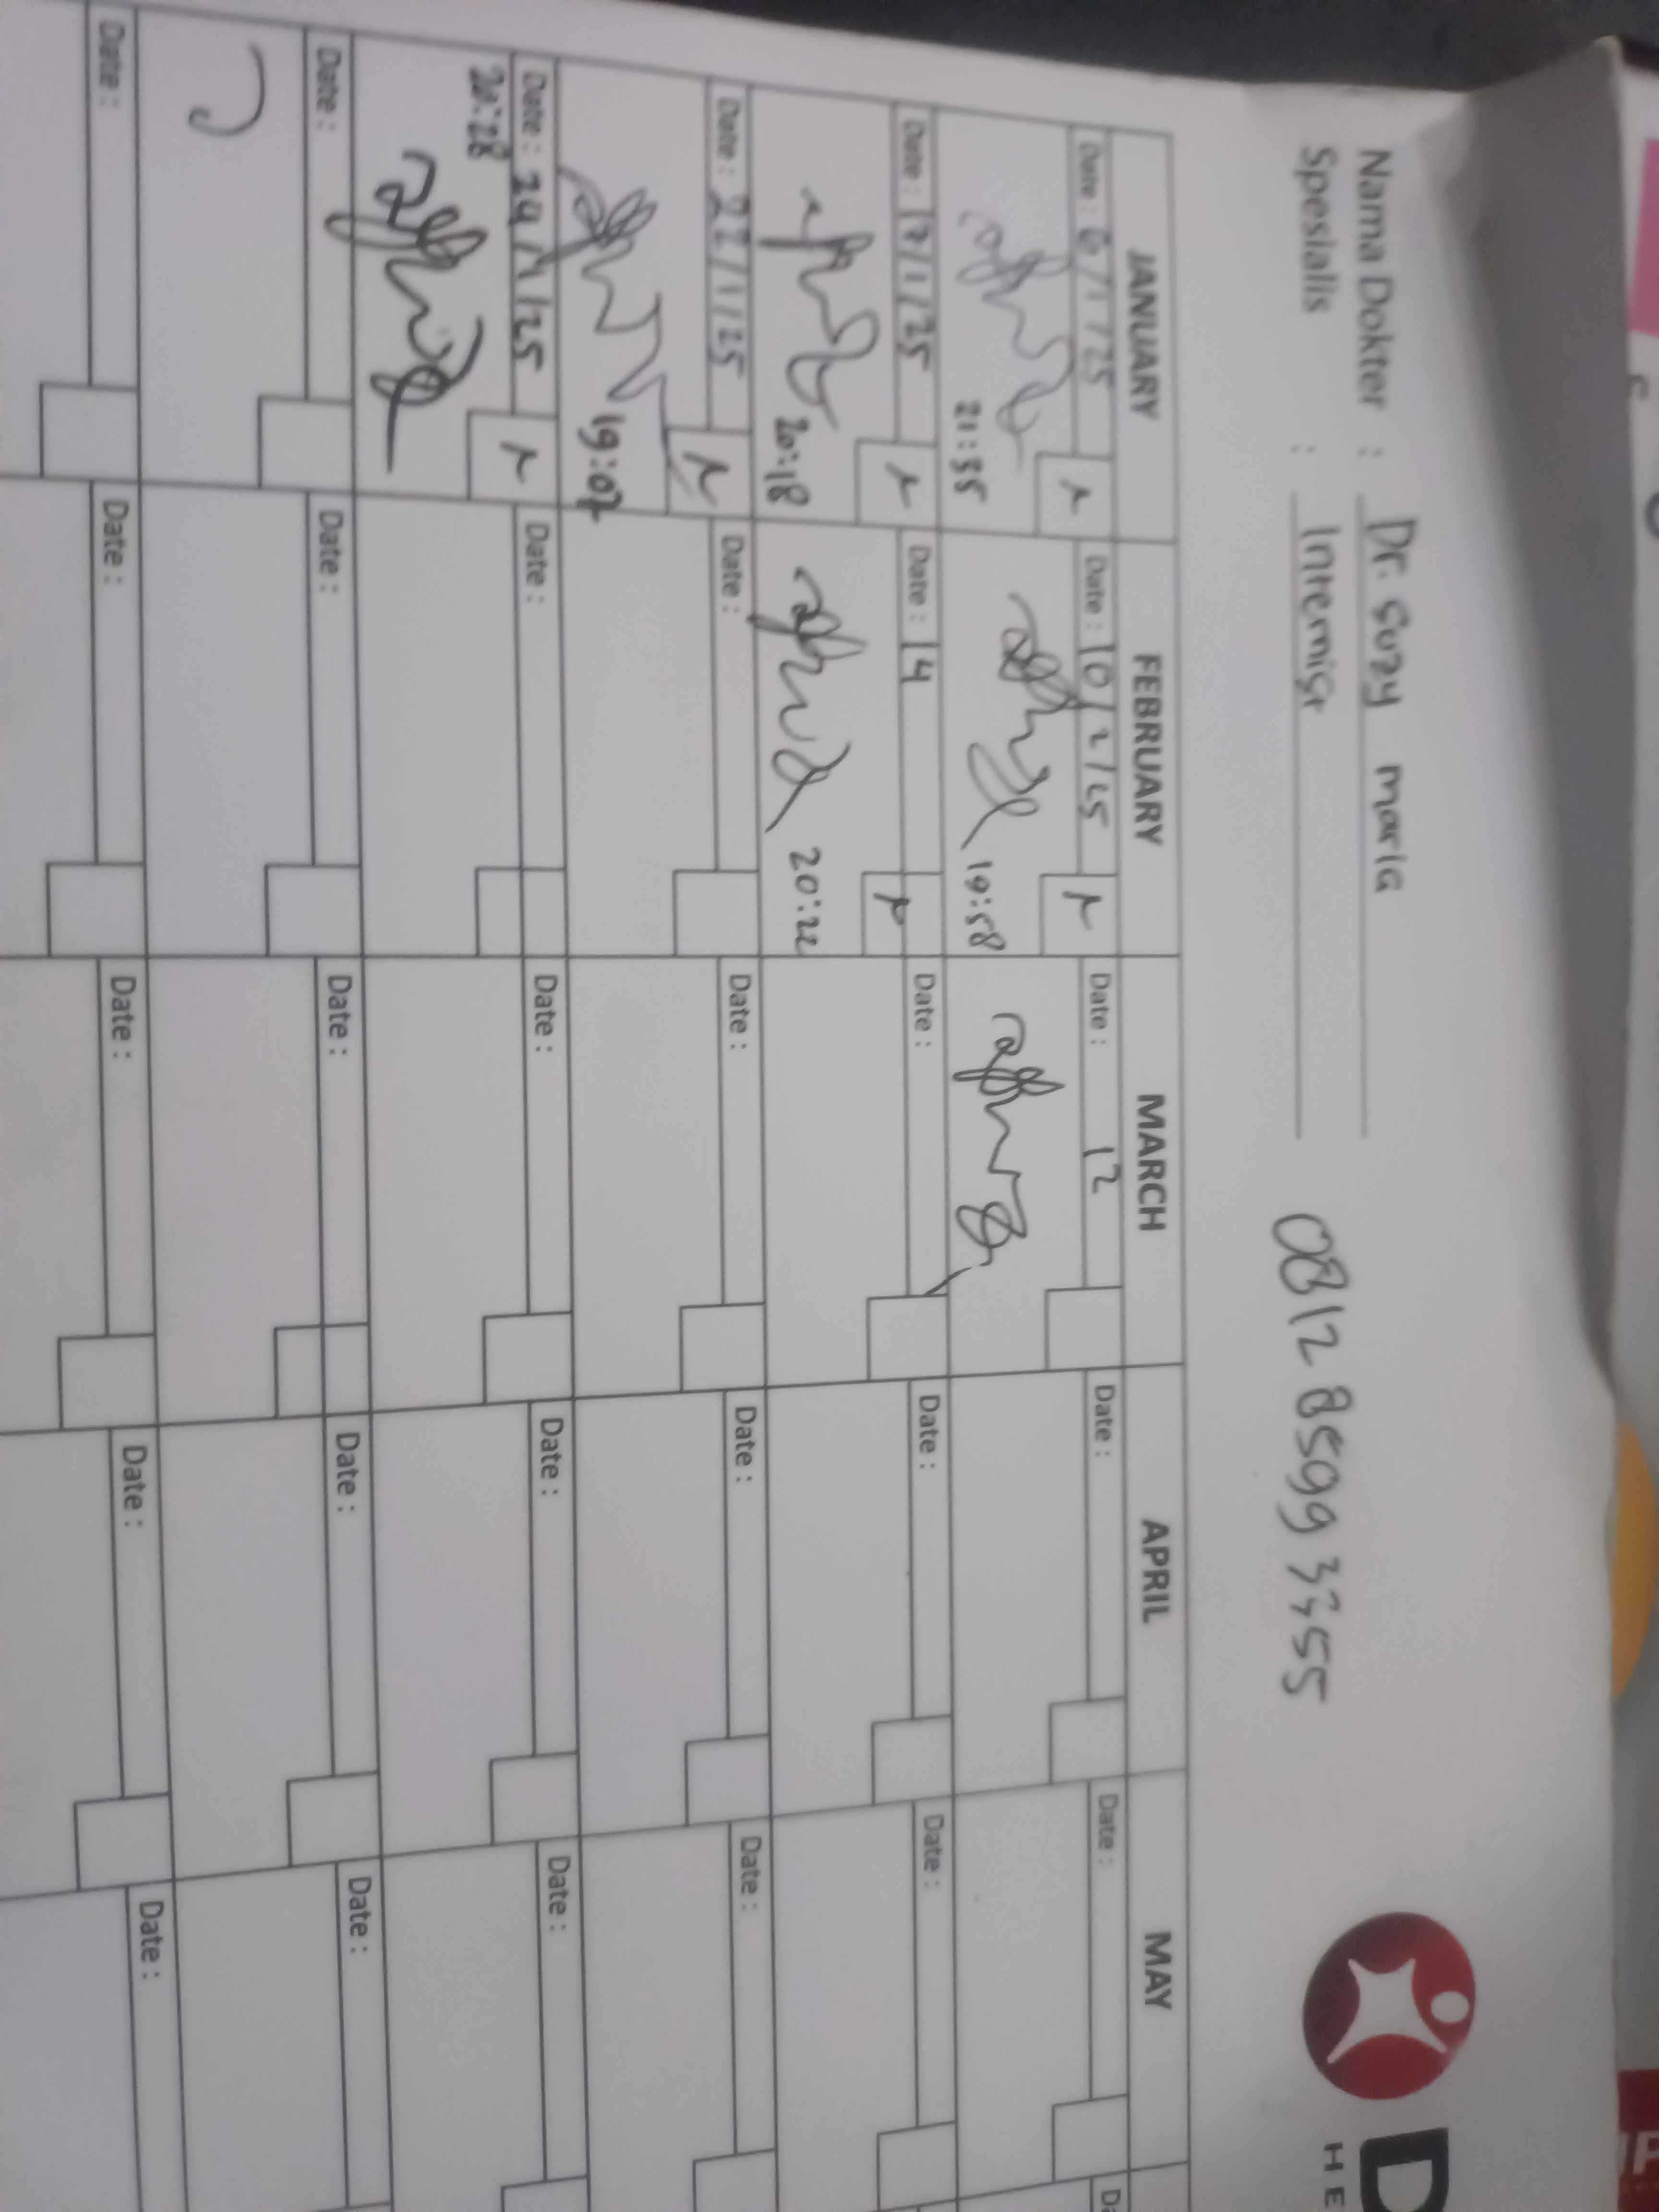 Nama Dokter : Dr. Suzy Maria
Spesialis : Internist
0812 8599 3355
D
HE
JANUARY FEBRUARY MARCH APRIL MAY
Date : 6/1/25 Date : 10/2/25 Date : 12 Date : Date : Da
21:35 19:58
Date : 17/1/25 Date : 14 Date : Date : Date :
20:18 20:22
Date : 22/1/25 Date : Date : Date : Date :
19:07
Date : 24/1/25 Date : Date : Date : Date :
20:28
Date : Date : Date : Date : Date :
Date : Date : Date : Date : Date :